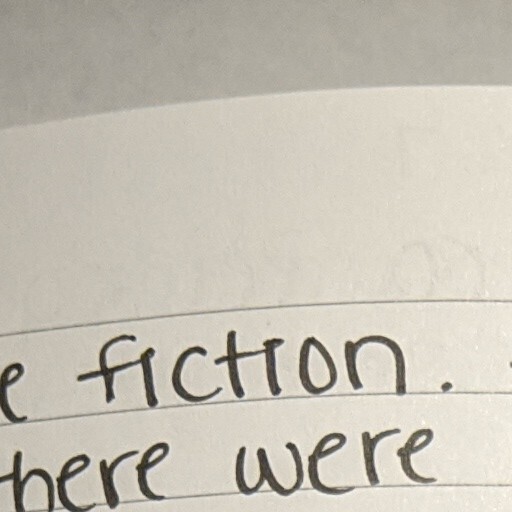 e fiction.
here were